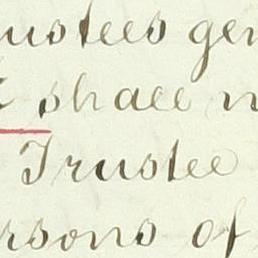 ustees gen
shall n
Trustee
rsons of